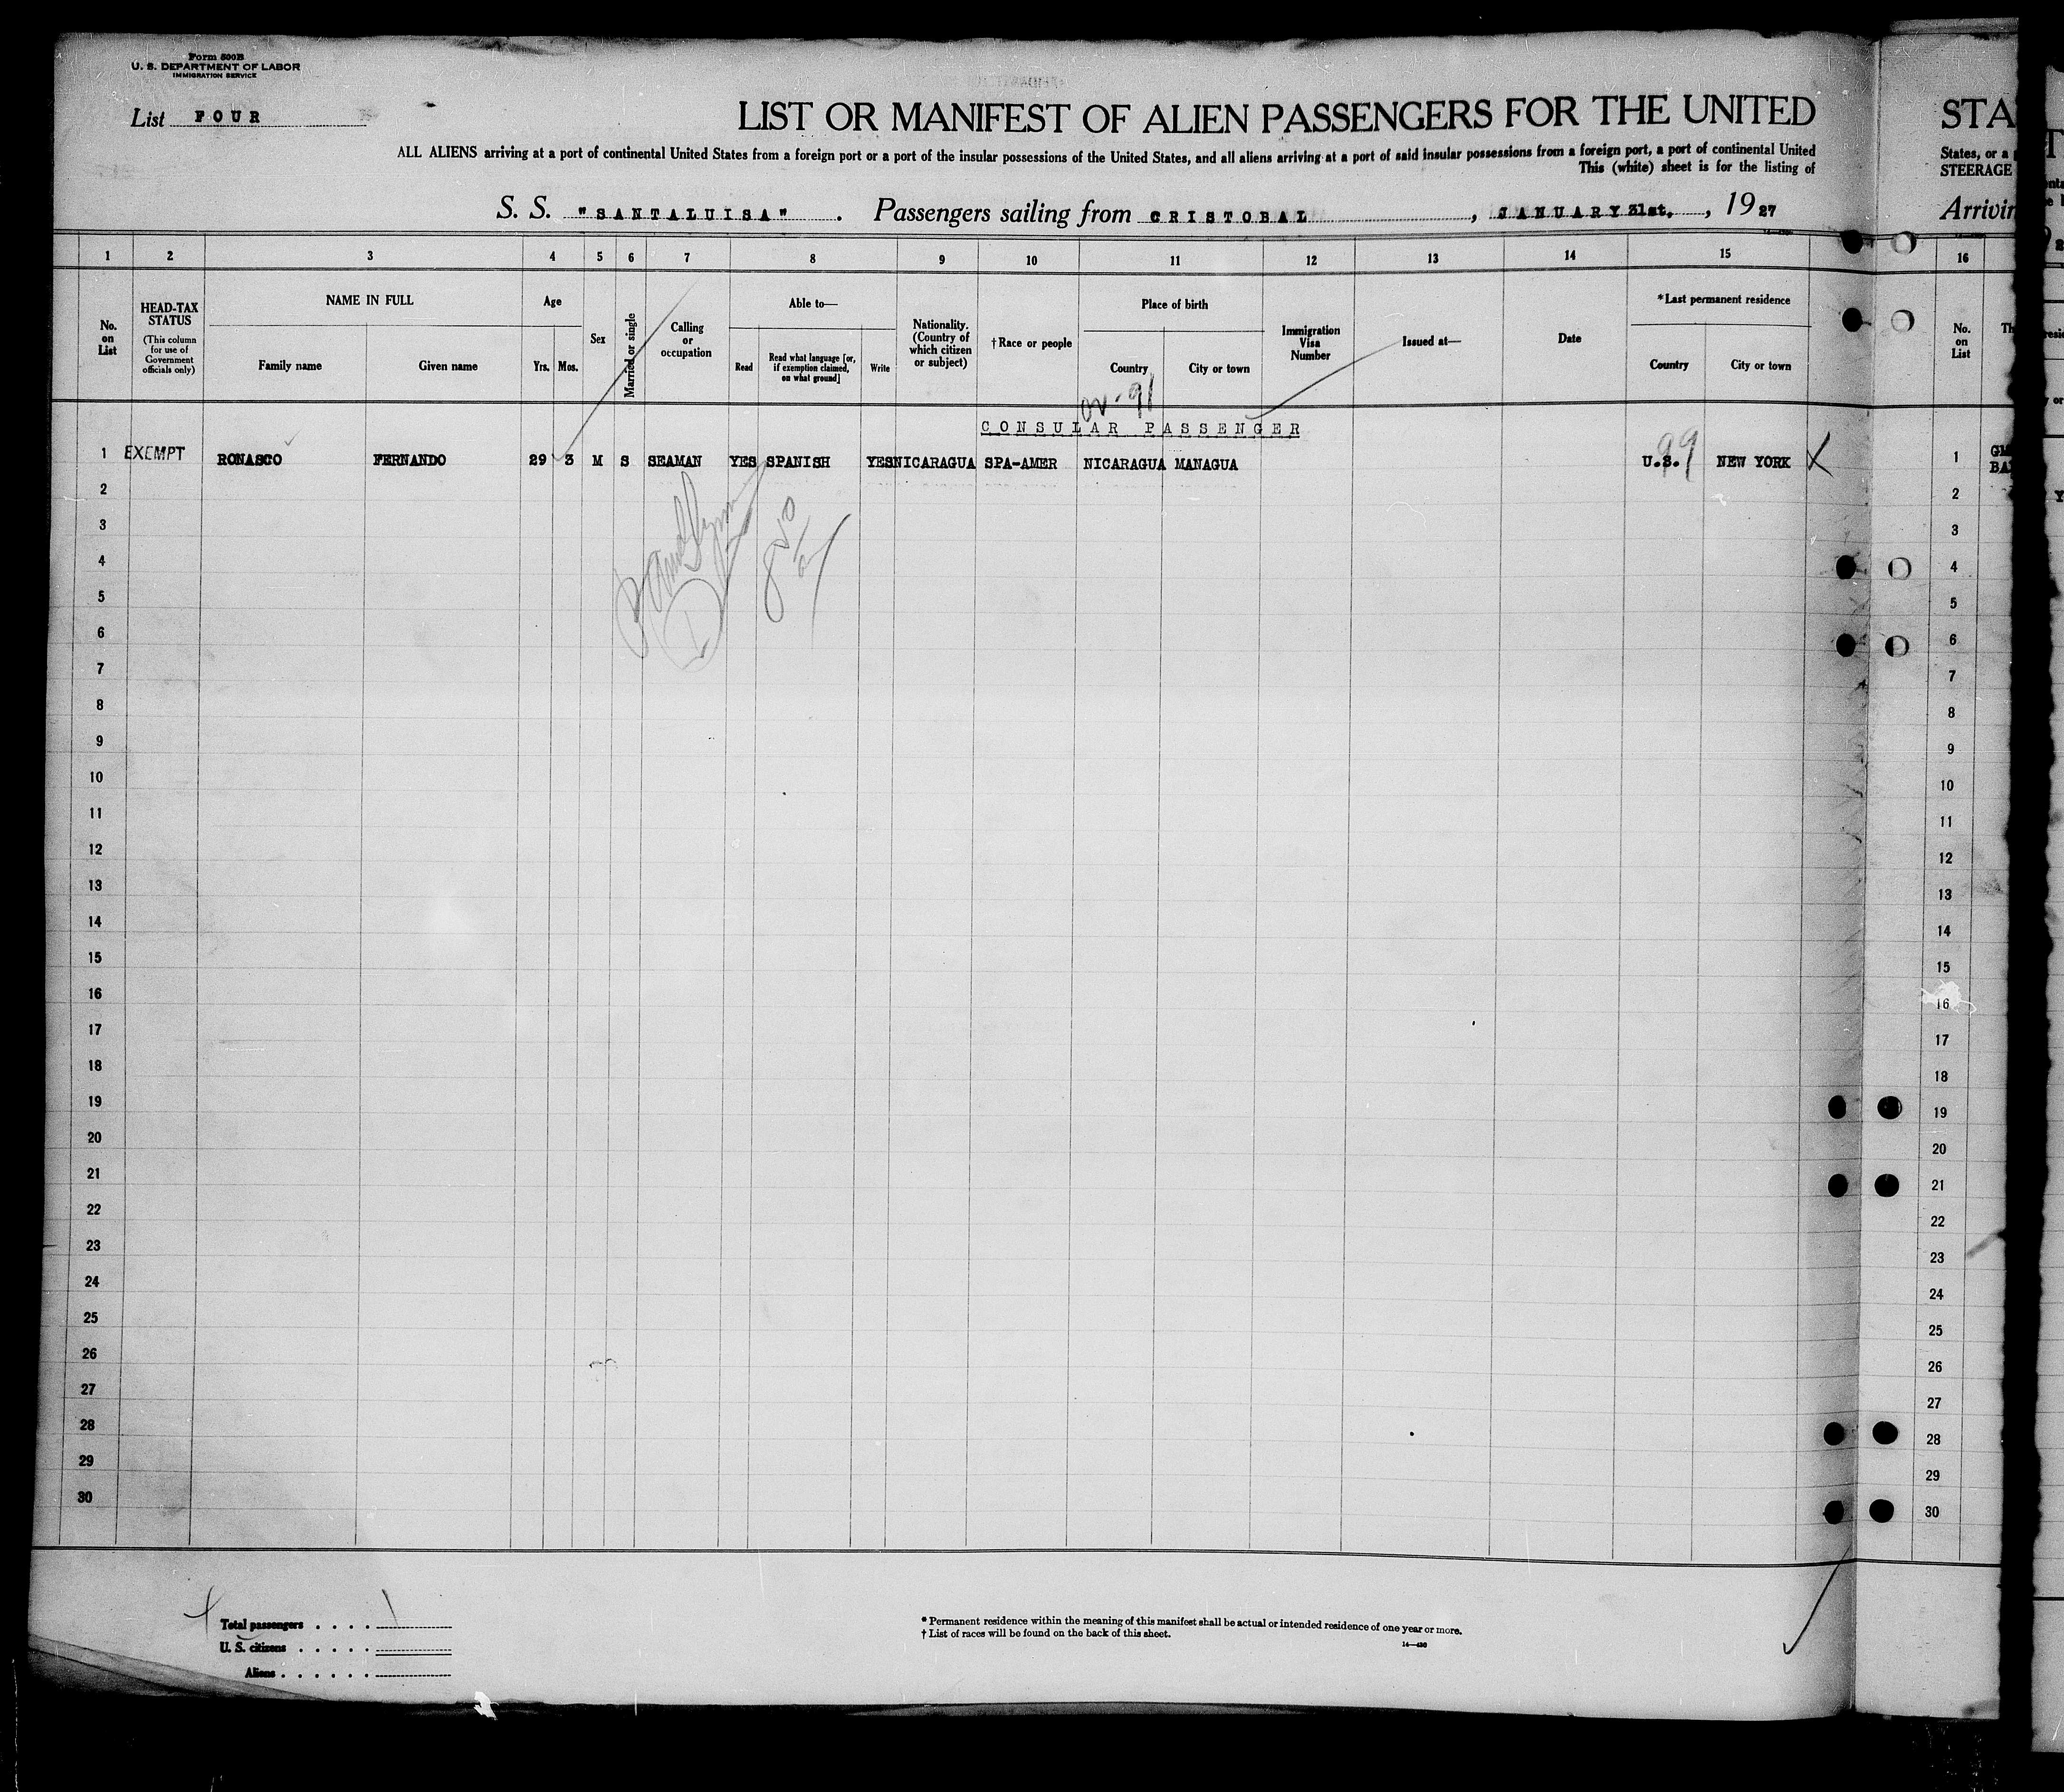 Form 500B
U. S. DEPARTMENT OF LABOR
IMMIGRATION SERVICE
List FOUR
LIST OR MANIFEST OF ALIEN PASSENGERS FOR THE UNITED
ALL ALIENS arriving at a port of continental United States from a foreign port or a port of the insular possessions of the United States, and all aliens arriving at a port of said insular possessions from a foreign port, a port of continental United
This (white) sheet is for the listing of
S. S. "SANTALUISA". Passengers sailing from CRISTOBAL, JANUARY 31st., 1927
STA
States, or a
STEERAGE
Arrivin
1 2 3 4 5 6 7 8 9 10 11 12 13 14 15 16
No. on List
HEAD-TAX STATUS
(This column for use of Government officials only)
NAME IN FULL
Family name Given name
Age
Yrs. Mos.
Sex
Married or single
Calling or occupation
Able to—
Read
Read what language [or, if exemption claimed, on what ground]
Write
Nationality. (Country of which citizen or subject)
†Race or people
Place of birth
Country City or town
Immigration Visa Number
Issued at—
Date
*Last permanent residence
Country City or town
No. on List
ov-91
CONSULAR PASSENGER
1 EXEMPT RONASCO FERNANDO 29 3 M S SEAMAN YES SPANISH YES NICARAGUA SPA-AMER NICARAGUA MANAGUA U.S. 99 NEW YORK X 1
2 2
3 3
4 4
5 5
6 6
7 7
8 8
9 9
10 10
11 11
12 12
13 13
14 14
15 15
16 16
17 17
18 18
19 19
20 20
21 21
22 22
23 23
24 24
25 25
26 26
27 27
28 28
29 29
30 30
Total passengers . . . .
U. S. citizens . . . . .
Aliens . . . . . .
* Permanent residence within the meaning of this manifest shall be actual or intended residence of one year or more.
† List of races will be found on the back of this sheet.
14—430